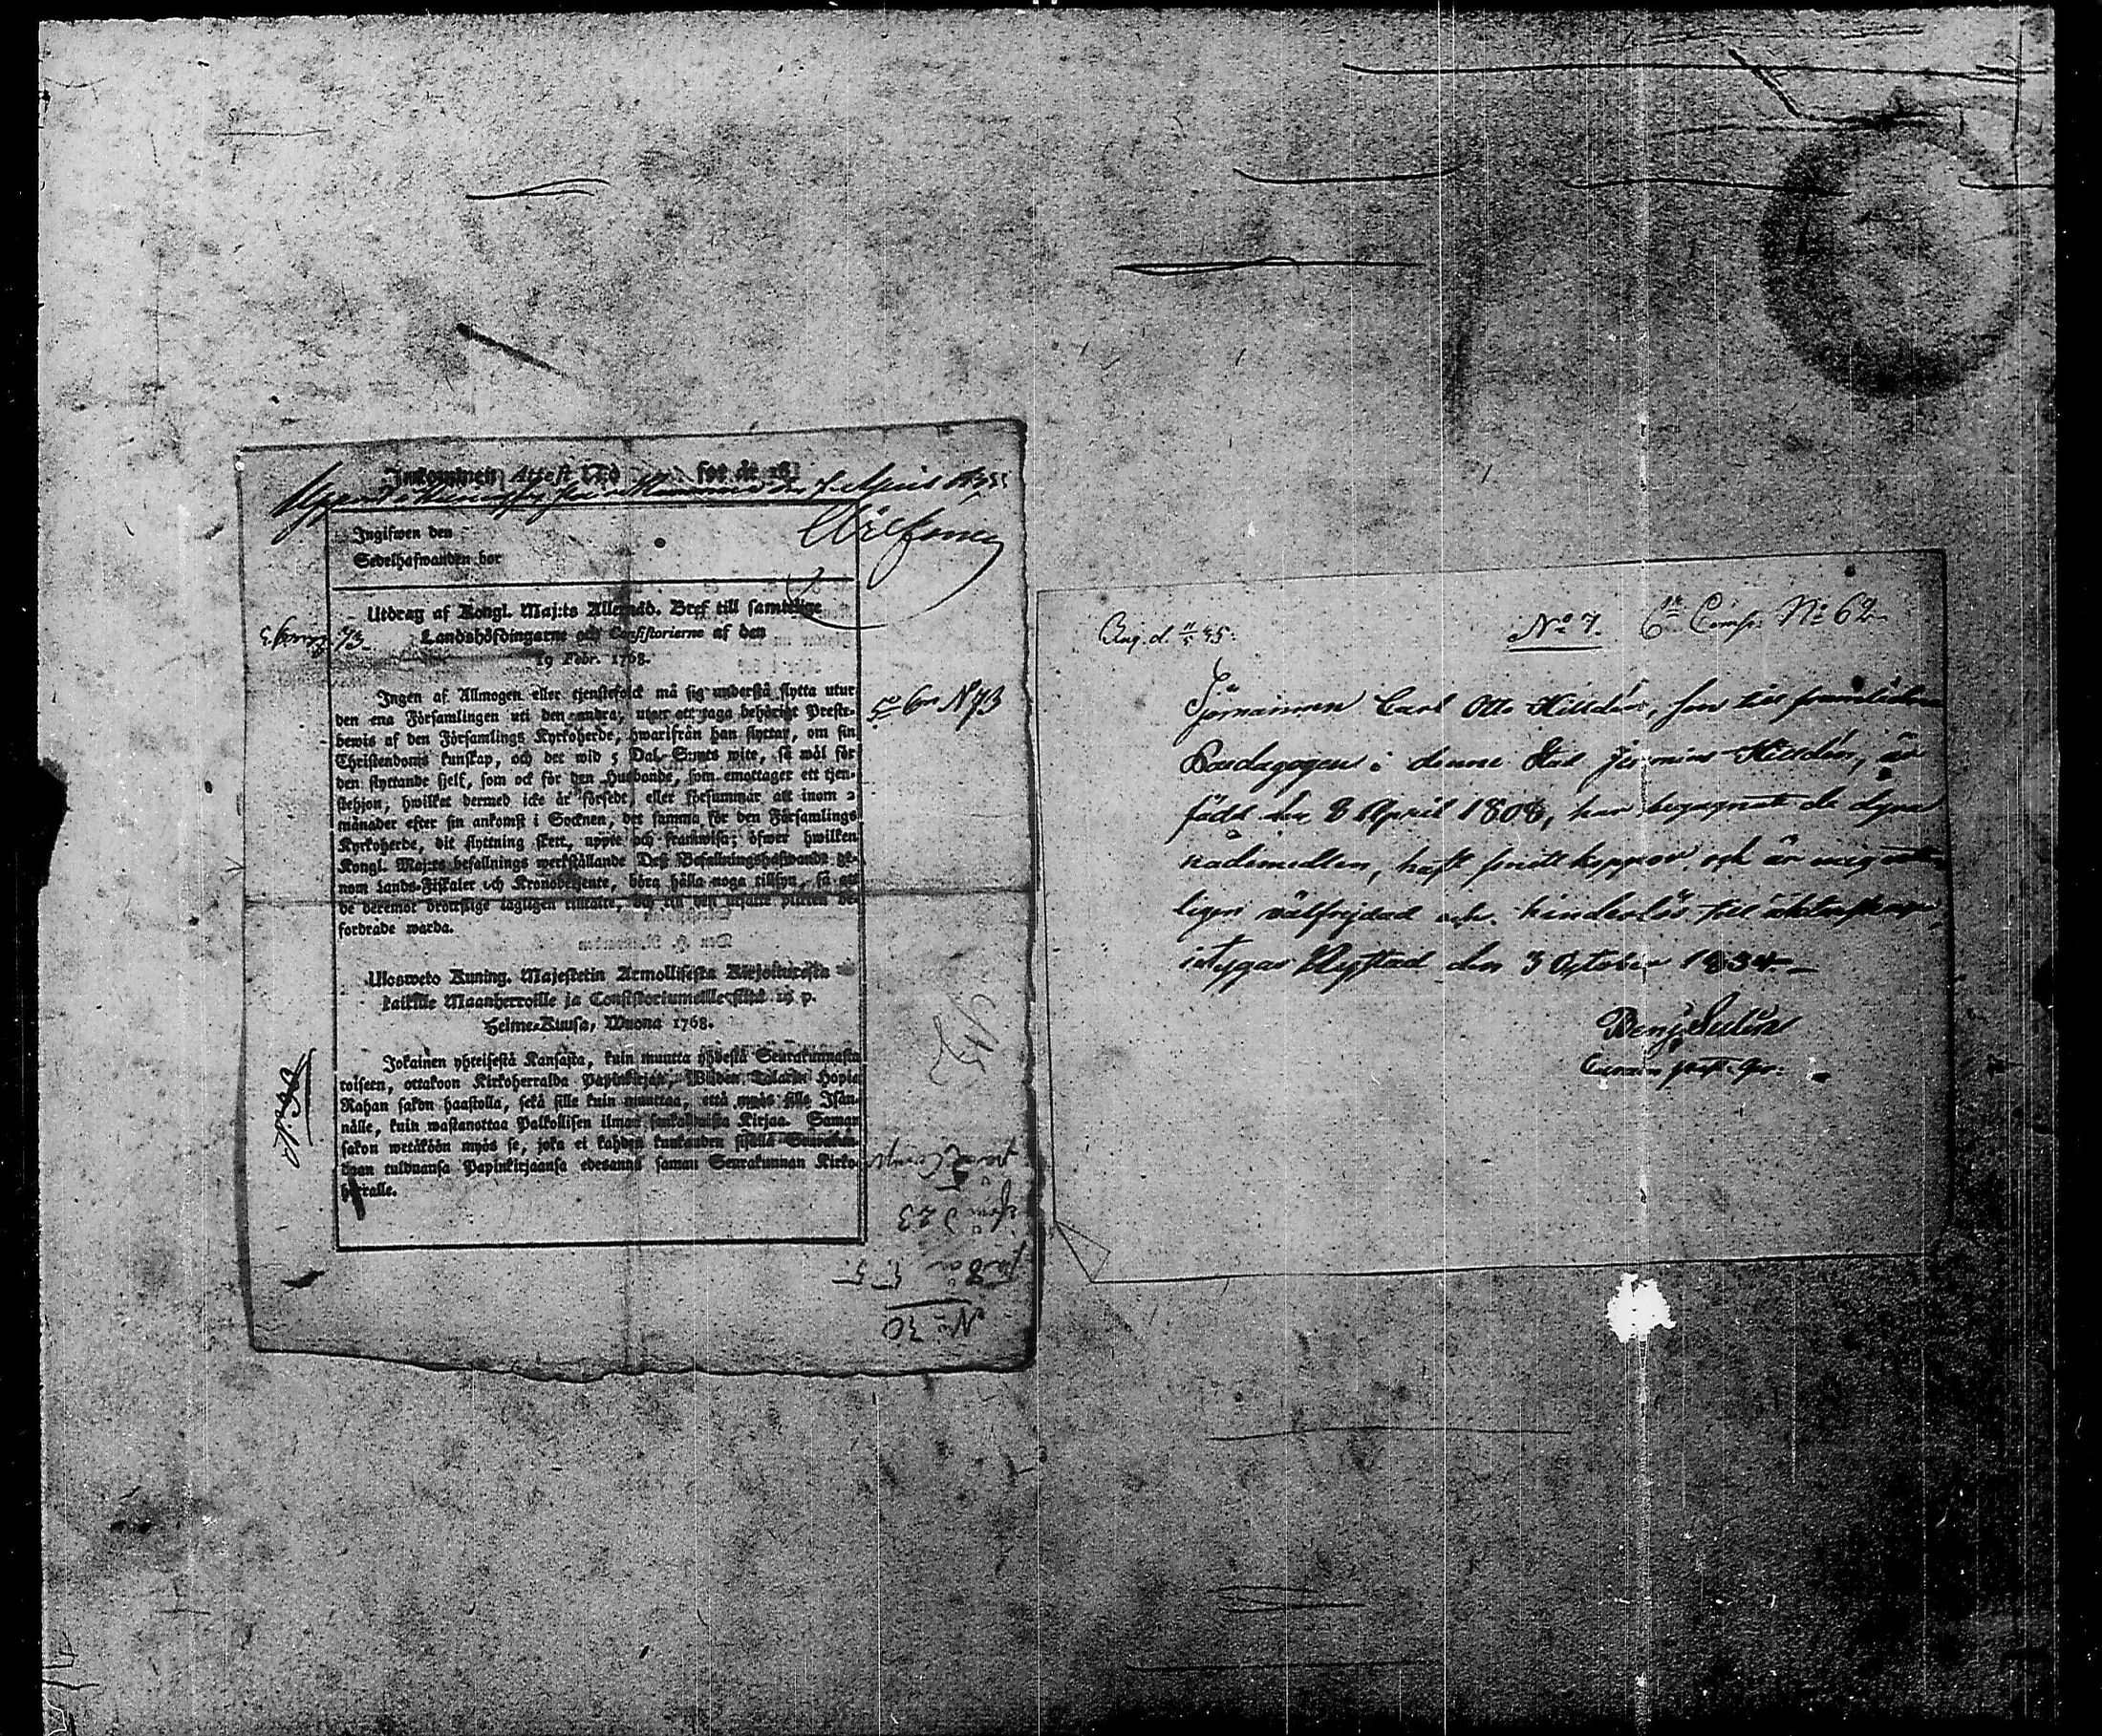 Inkommen Attest N:o för år 18
April 1835
Ingifwen den
Sedelhafwanden bor
Utdrag af Kongl. Maj:ts Allernåd. Bref till samtelige
Landshöfdingarne och Consistorierne af den
19 Febr. 1768.
Ingen af Allmogen eller tjenstefolck må sig understå flytta utur
den ena Församlingen uti den andra, utan att taga behörigt Preste-
bewis af den Församlings Kyrkoherde, hwarifrån han flyttar, om sin
Christendoms kunskap, och det wid 5 Dal. S:mts wite, så wäl för
den flyttande sjelf, som ock för den Husbonde, som emottager ett tjen-
stehjon, hwilket dermed icke är försedt, eller försummar att inom 2
månader efter sin ankomst i Socknen, det samma för den Församlings
Kyrkoherde, dit flyttning skett, uppte och framwisa; öfwer hwilken
Kongl. Maj:ts befallnings werkställande Dess Befallningshafwande ge-
nom Lands-Fiskaler och Kronobetjente, böra hålla noga tillsyn, så att
de deremot brottslige lagligen tilltalte, och till den utsatte plicten be-
fordrade warda.
Ulosweto Kuning. Majestetin Armollisesta Kirjoituresta
kaikille Maanherroille ja Consistoriumeille siitä 19 p.
Helme-Kuusa, Wuona 1768.
Jokainen yhteisestä Kansasta, kuin muutta yhdestä Seurakunnasta
toiseen, ottakoon Kirkoherralda Papinkirjan, Wiiden Talarin Hopia
Rahan sakon haastolla, sekä sille kuin muuttaa, että myös sille Isän-
nälle, kuin wastanottaa Palkollisen ilman Kirjaa. Saman
sakon wetäköön myös se, joka ei kahden kuukauden sisällä Seurakun-
daan tulduansa Papinkirjaansa edesanna saman Seurakunnan Kirko-
herralle.
6:n N:o 73
N:o 30
N:o 7. 6:te Comp. N:o 62
Carl Otto Killdén, son till framlidne
Paedagogen i denne Stad Killdén, är
född den 8 April 1808, har begagnat de dyra
nådemedlen, haft smittkoppor och är
ligen välfrejdad och hinderlös till äktenskap,
intygar Nystad den 3 October 1834.